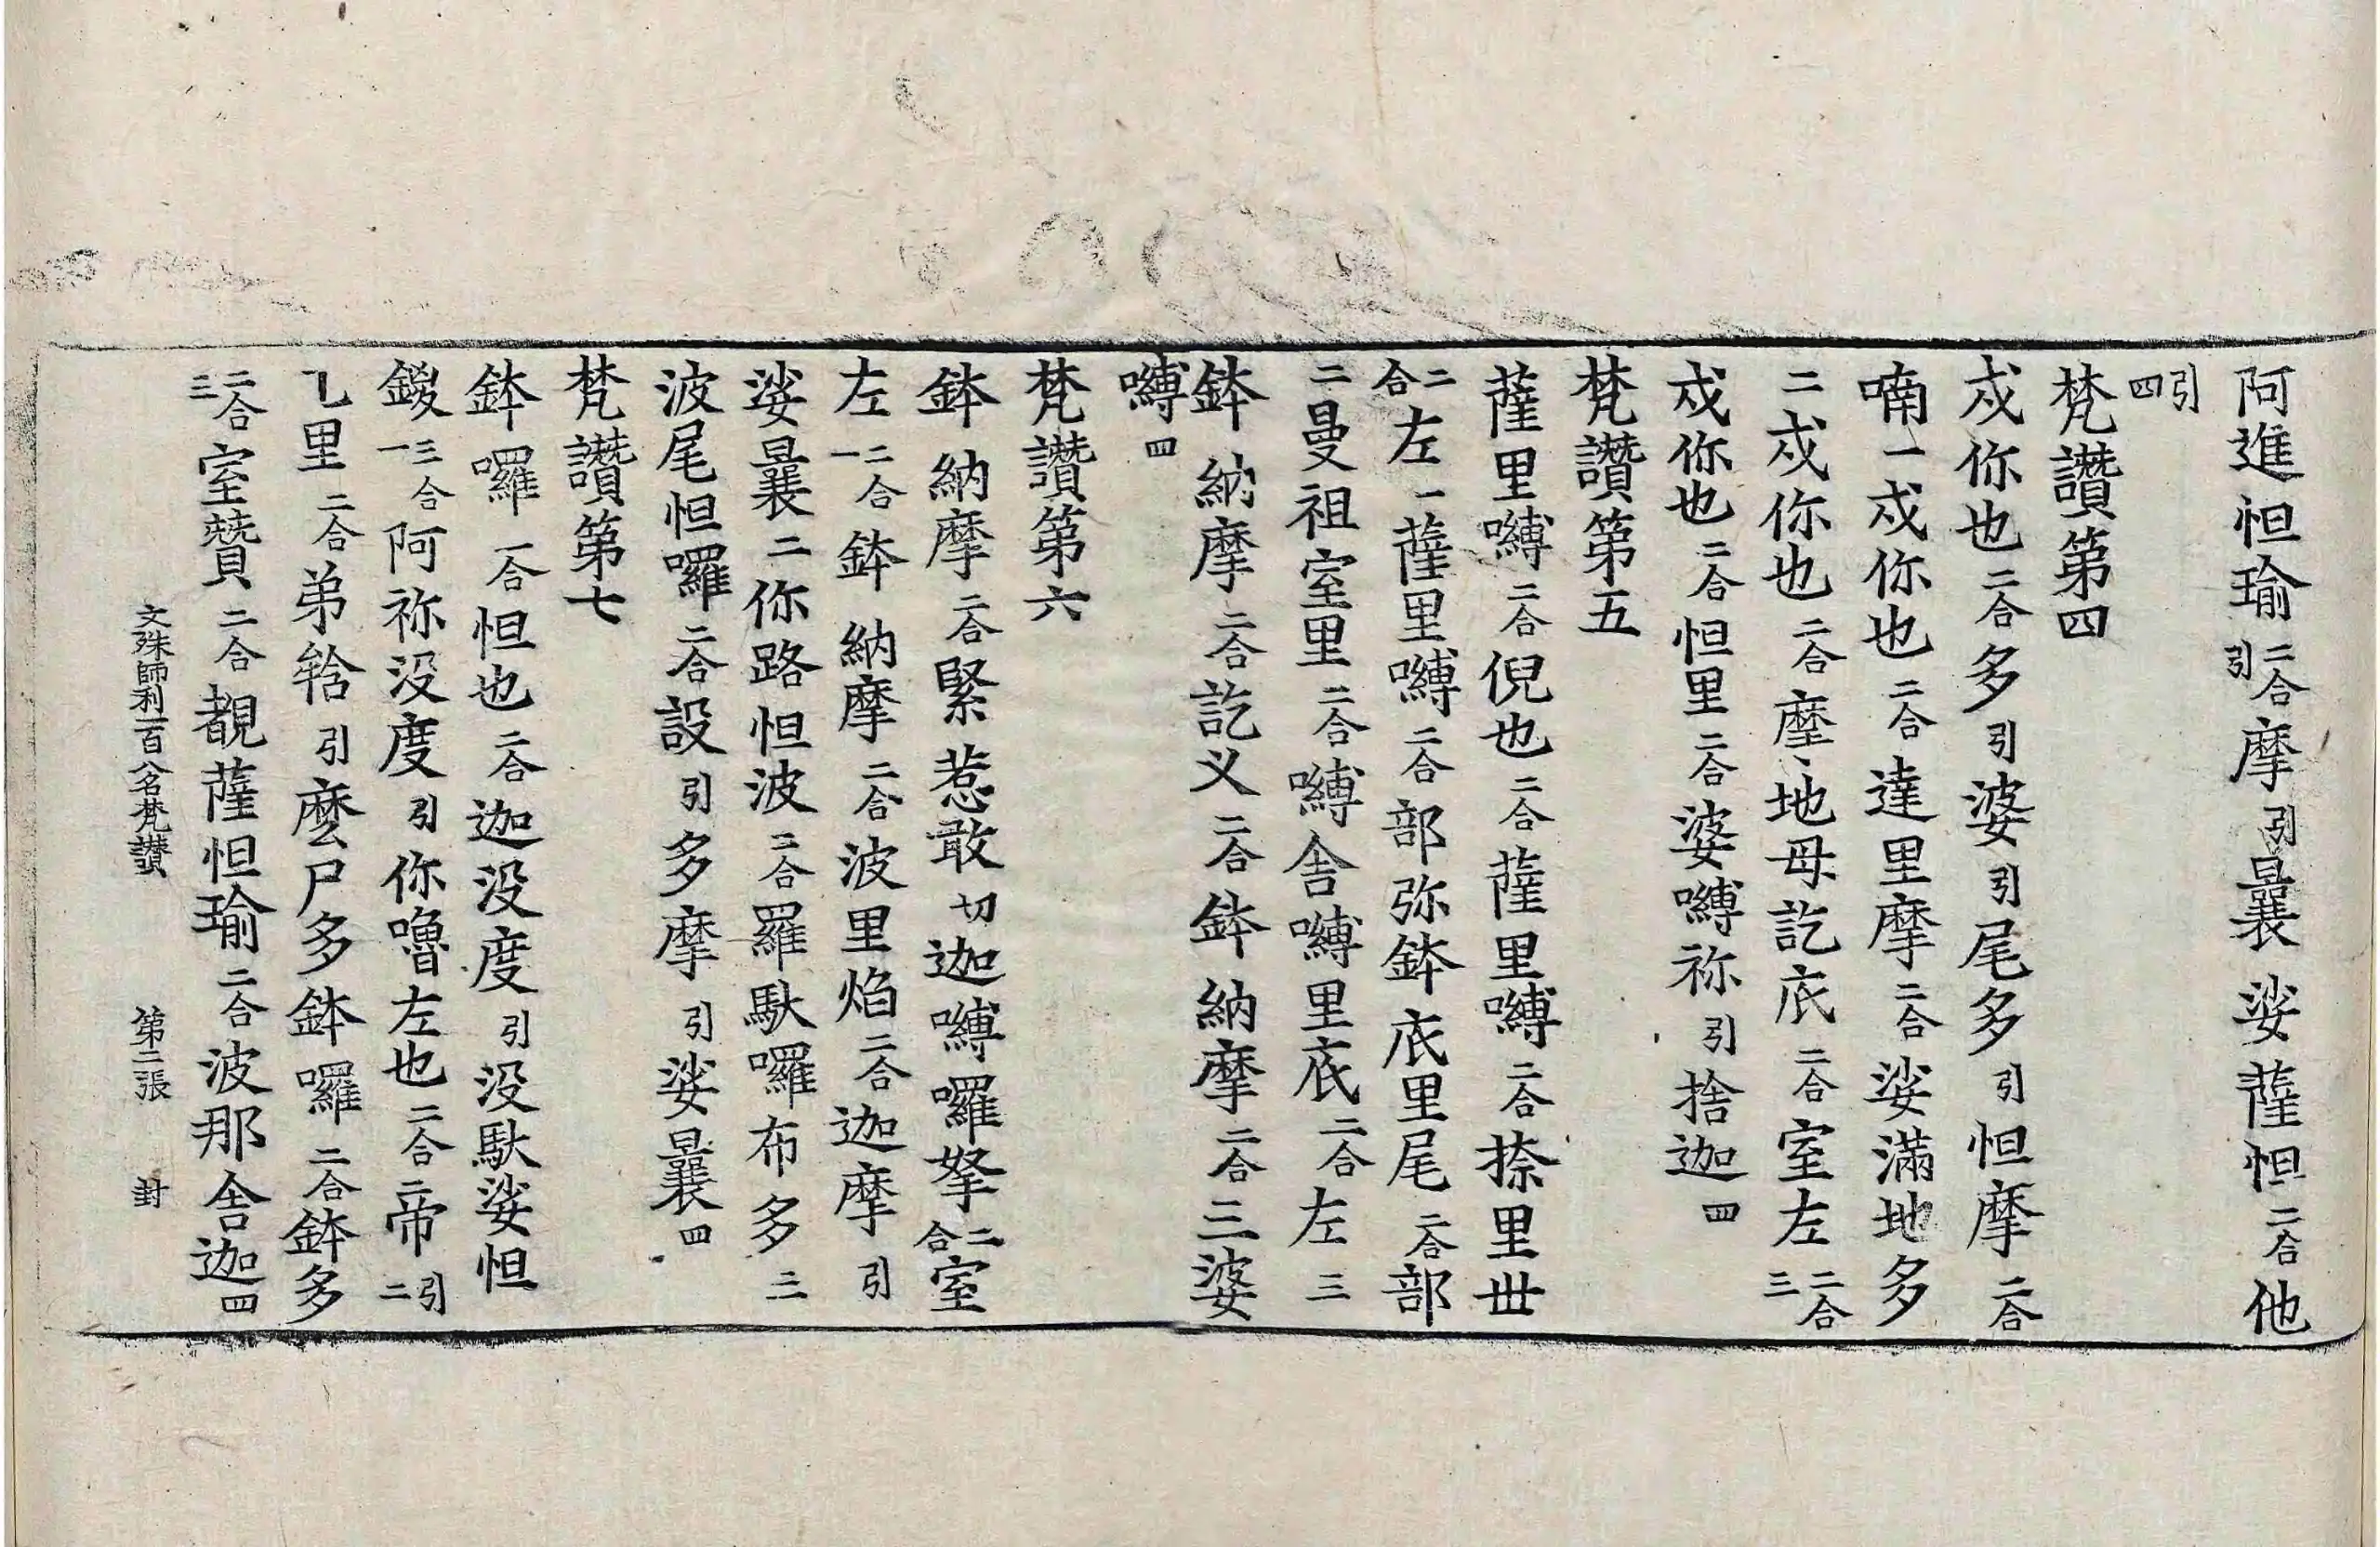 阿進怛瑜二合引摩引曩娑薩怛二合他
引四
梵讚第四
戍你也二合多引婆引尾多引怛摩二合
喃一戍你也二合達里摩二合娑滿地多
二戍你也二合摩地母訖底二合室左二合三
戍你也二合怛里二合婆嚩祢引捨迦四
梵讚第五
薩里嚩二合倪也二合薩里嚩二合捺里世
二合左一薩里嚩二合部弥鉢底里尾二合部
二曼祖室里二合嚩舎嚩里底二合左三
鉢納摩二合訖义二合鉢納摩二合三婆
嚩四
梵讚第六
鉢納摩二合緊惹敢切迦嚩囉拏二合室
左二合一鉢納摩二合波里焰二合迦摩引
娑曩二你路怛波二合羅馱囉布多三
波尾怛囉二合設引多摩引娑曩四
梵讚第七
鉢囉二合怛也二合迦没度引没馱娑怛
鑁三合一阿祢没度引你嚕左也二合帝引二
乁里二合弟𤚥引麽尸多鉢囉二合鉢多
二合三室贊二合覩薩怛瑜二合波那舎迦四
文殊師利一百八名梵讃 第二張 封